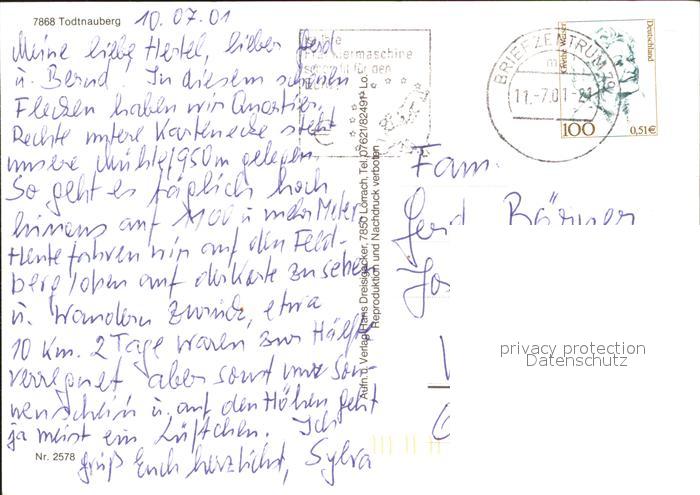 7868 Todtnauberg
10.07.01
Meine liebe Hertel, lieber Gerd
u. Bernd. In diesem schönen
Flecken haben wir Quartier,
Rechte untere Kartenecke steht
unsere Mühle, 950m gelegen.
So geht es täglich hoch
hinaus auf 1100 u. mehr Meter
Heute fahren wir auf den Feld-
berg, oben auf der Karte zu sehen
u. wandern zurück, etwa
10 Km. 2 Tage waren zur Hälfte
verregnet aber sonst nur Son-
nenschein u. auf den Höhen geht
ja meist ein Lüftchen. Ich
grüß Euch herzlichst, Sylva
Nr. 2578
Aufn.u. Verlag Hans Dreisigacker, 7850 Lörrach Tel. 07621/82491
Reproduktion und Nachdruck verboten
BRIEFZENTRUM 79
11.-7.01-21
Deutschland
100
0,51€
Fam.
Gerd Börner
privacy protection
Datenschutz